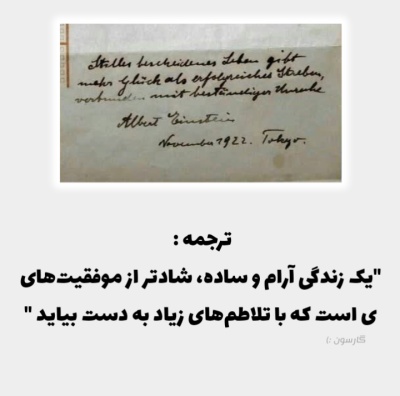 Stilles bescheidenes Leben gibt
mehr Glück als erfolgreiches Streben,
verbunden mit beständiger Unruhe
Albert Einstein
November 1922. Tokyo.
ترجمه :
"یک زندگی آرام و ساده، شادتر از موفقیت‌های
ی است که با تلاطم‌های زیاد به دست بیاید "
گارسون :)